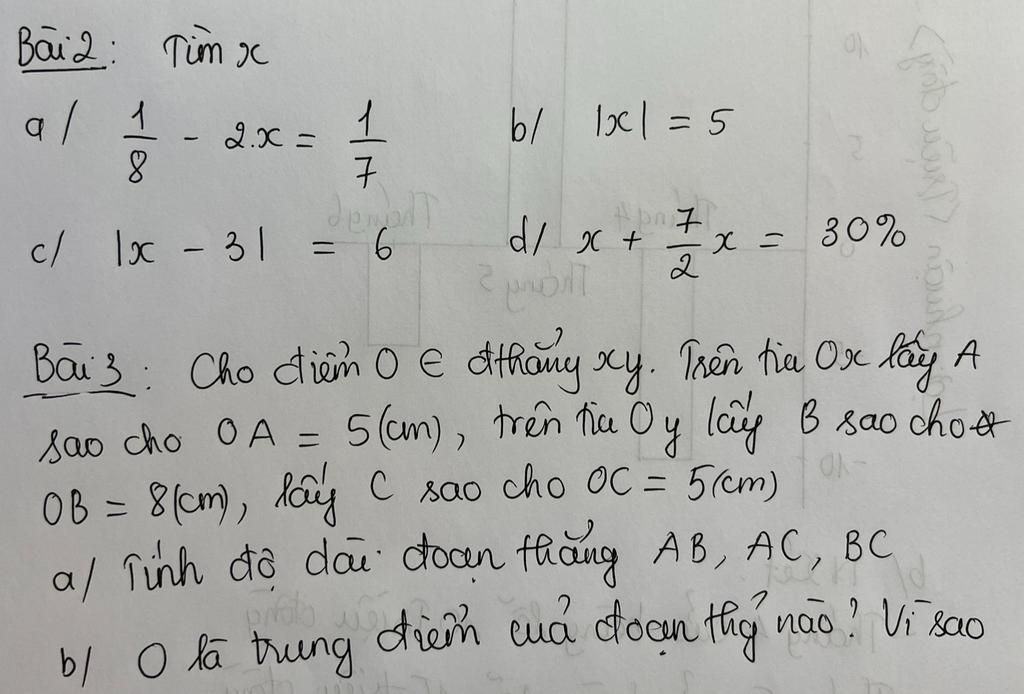 Bài 2: Tìm x
a/ 1/8 - 2.x = 1/7 b/ |x| = 5
c/ |x - 3| = 6 d/ x + 7/2 x = 30%
Bài 3: Cho điểm O ∈ đthẳng xy. Trên tia Ox lấy A
sao cho OA = 5(cm), trên tia Oy lấy B sao cho
OB = 8(cm), lấy C sao cho OC = 5(cm)
a/ Tính độ dài đoạn thẳng AB, AC, BC
b/ O là trung điểm của đoạn thg̉ nào? Vì sao
Tháng 6
Tháng 4
Tháng 5
10
5
0
-10